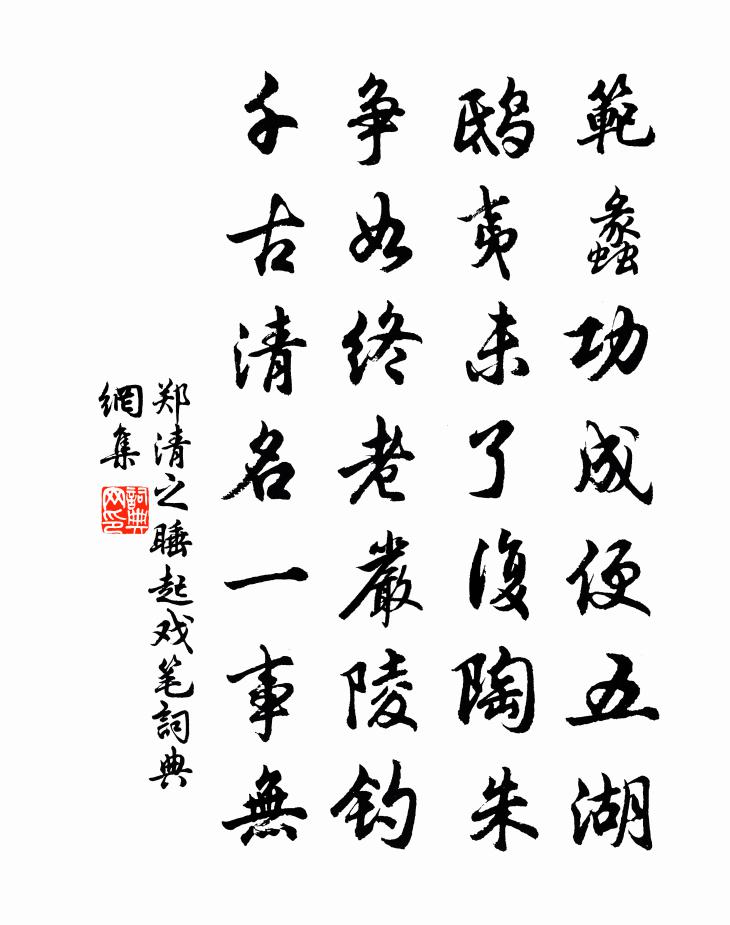 範蠡功成便五湖
鴟夷未了復陶朱
争如終老嚴陵钓
千古清名一事無
郑清之睡起戏笔詞典
網集
詞典网印